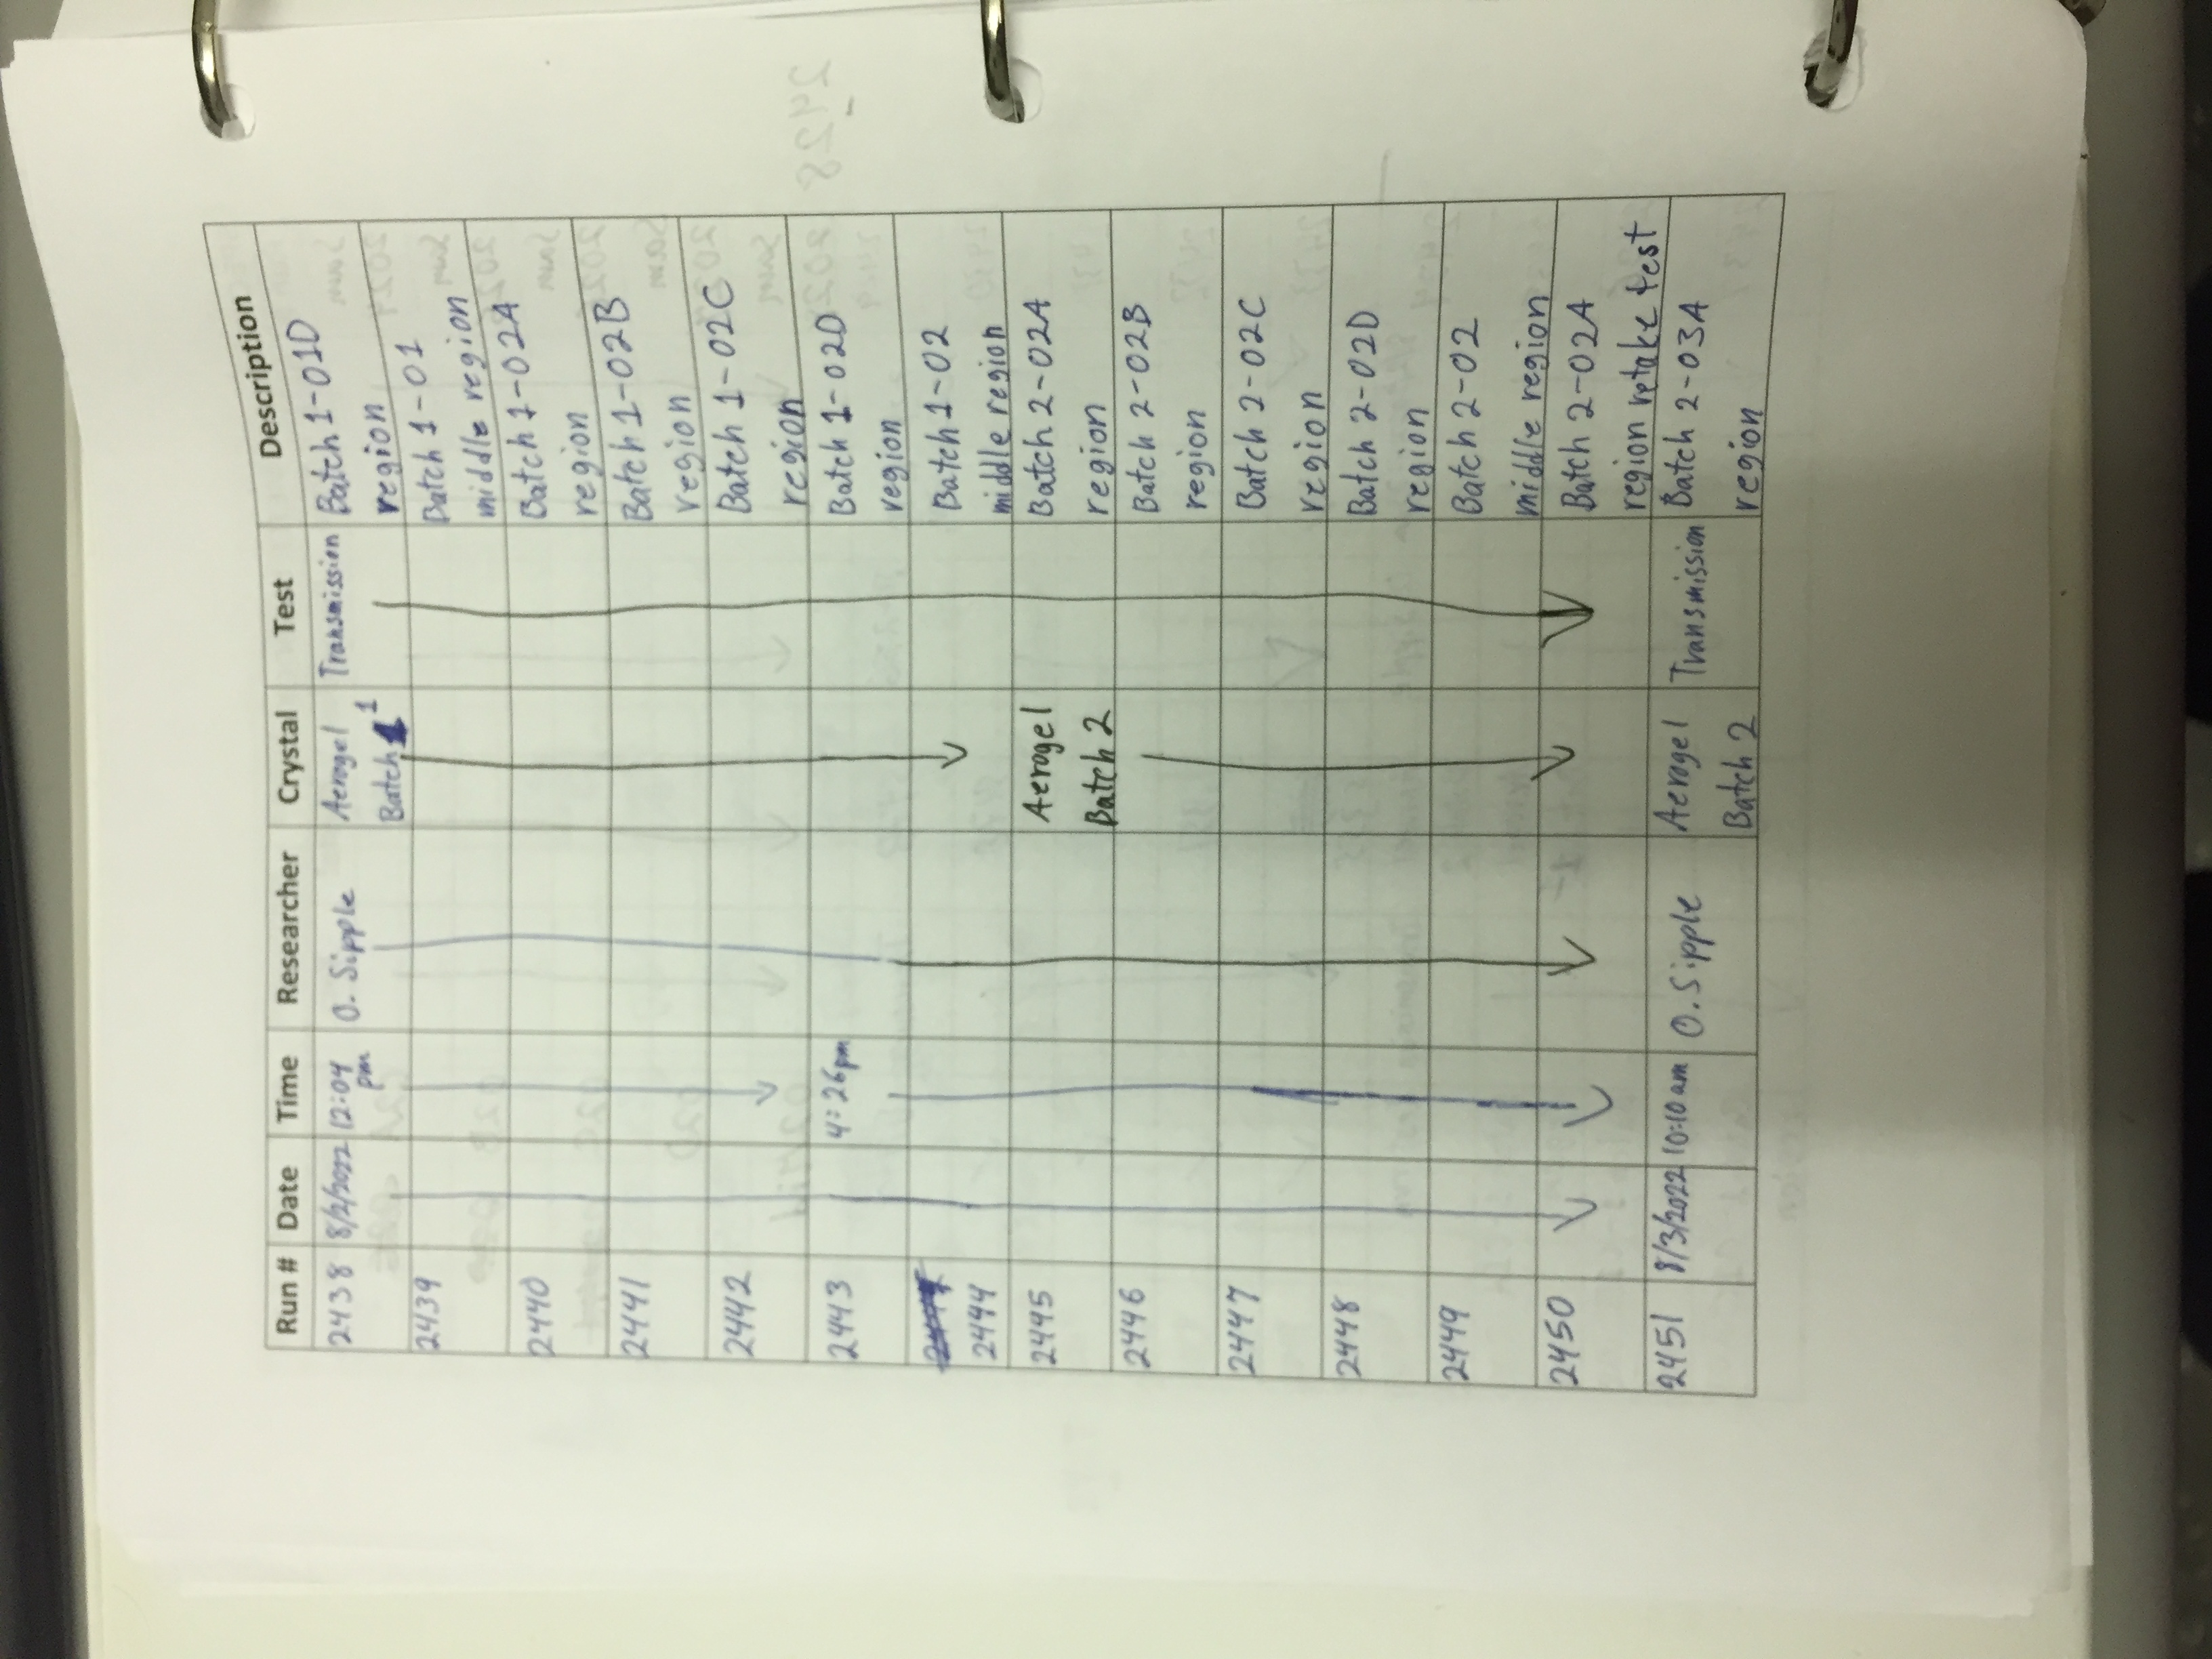 Run # Date Time Researcher Crystal Test Description
2438 8/2/2022 12:04 pm O. Sipple Aerogel Batch 1 Transmission Batch 1-01D
region
2439 Batch 1-01
middle region
2440 Batch 1-02A
region
2441 Batch 1-02B
region
2442 Batch 1-02C
region
2443 4:26pm Batch 1-02D
region
2444 Batch 1-02
middle region
2445 Aerogel Batch 2-02A
Batch 2 region
2446 Batch 2-02B
region
2447 Batch 2-02C
region
2448 Batch 2-02D
region
2449 Batch 2-02
middle region
2450 Batch 2-02A
region retake test
2451 8/3/2022 10:10 am O. Sipple Aerogel Transmission Batch 2-03A
Batch 2 region